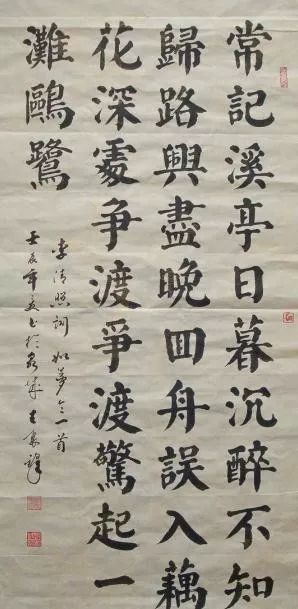 常記溪亭日暮沉醉不知
歸路興盡晚囬舟誤入藕
花深處争渡爭渡驚起一
灘鷗鷺
李清照詞如夢令一首
壬辰年夏书於